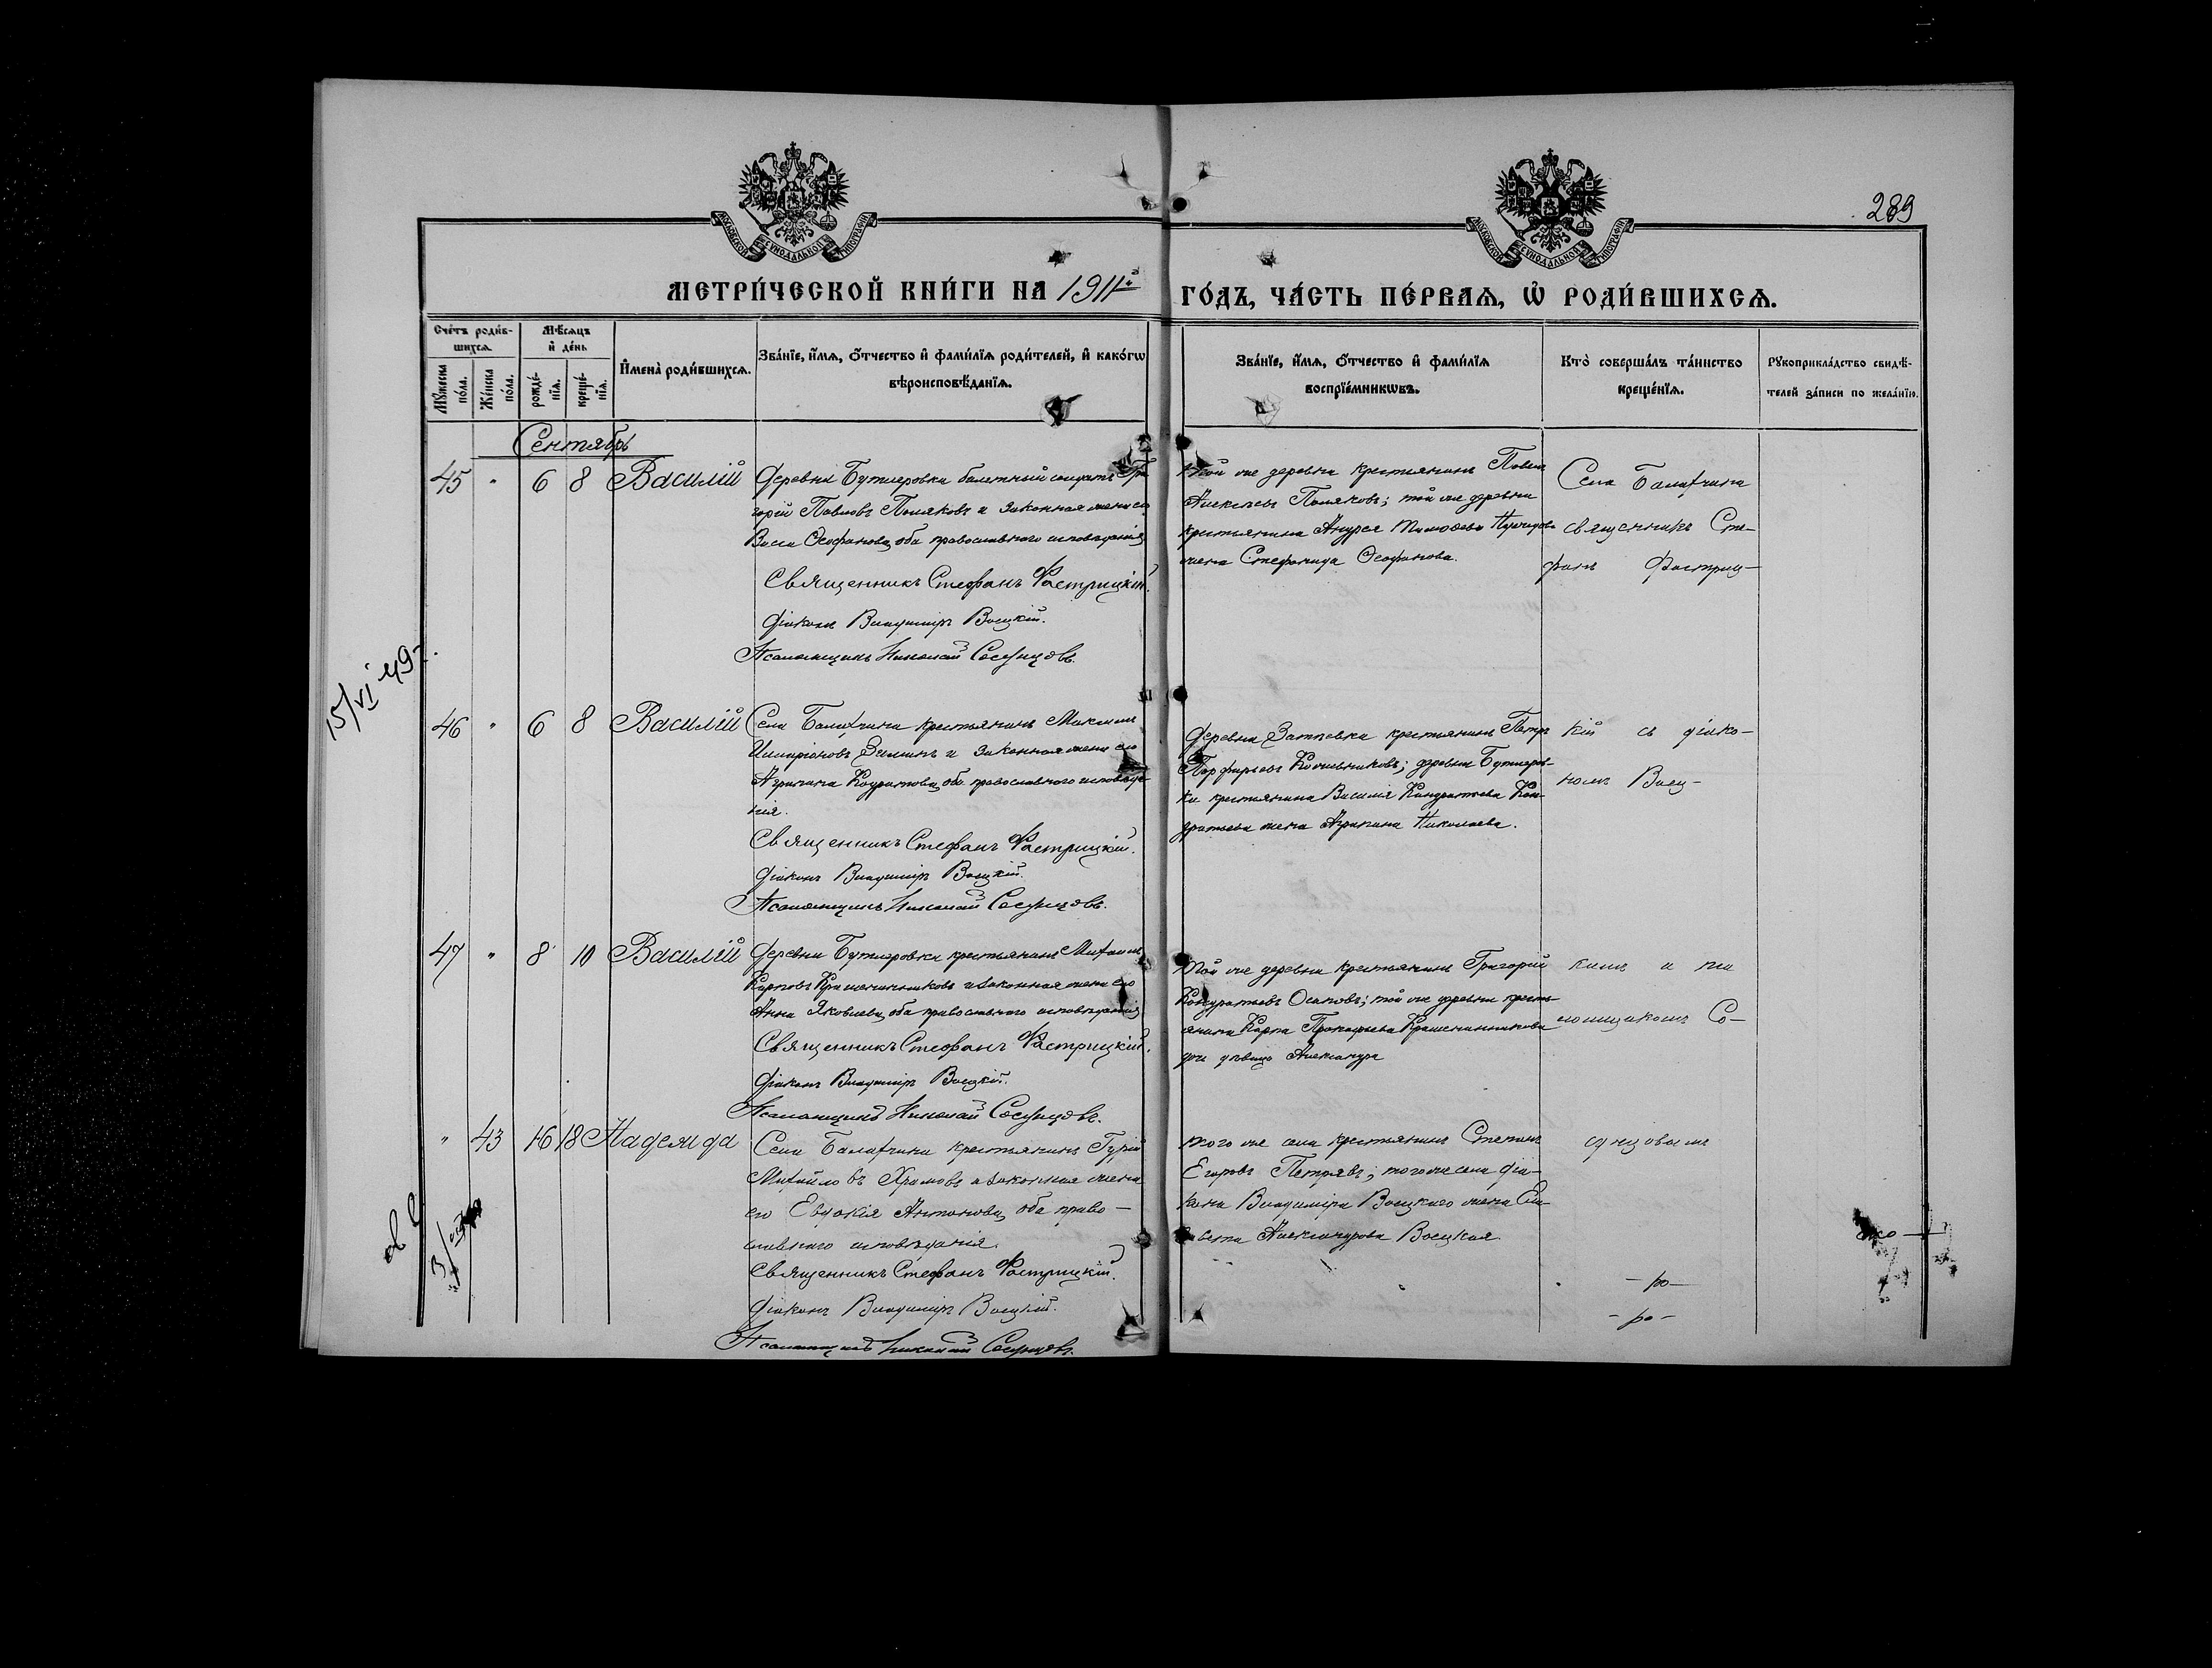 289
МОСКОВСКОЙ СѴНОДАЛЬНОЙ ТИПОГРАФІИ
МОСКОВСКОЙ СѴНОДАЛЬНОЙ ТИПОГРАФІИ
МЕТРИ́ЧЕСКОЙ КНИ́ГИ НА 1911й ГО́ДЪ, ЧА́СТЬ ПЕ́РВАѦ, Ѽ РОДИ́ВШИХСѦ.
Сче́тъ роди́в-
шихсѧ.
Мѣ́сѧцъ
и҆ де́нь
Мꙋ́жеска по́ла.
Же́нска по́ла.
рожде́-
нїѧ.
креще́-
нїѧ.
И҆мена̀ роди́вшихсѧ.
Зва́нїе, и҆́мѧ, ѻ҆́тчество и҆ фами́лїѧ роди́телей, и҆ како́гѡ
вѣроисповѣ́данїѧ.
Зва́нїе, и҆́мѧ, ѻ҆́тчество и҆ фами́лїѧ
воспрїе́мникѡвъ.
Кто̀ соверша́лъ та́инство
креще́нїѧ.
Рꙋкоприкла́дство свидѣ́-
телей за́писи по жела́нїю.
Сентябрь
45 " 6 8 Василій
Деревни Бутыровки билетный солдатъ Гри
горій Павловъ Поляковъ и законная жена его
Васса Ѳеофанова, оба православнаго исповѣданія
Священникъ Стефанъ Фастрицкій.
Діаконъ Владиміръ Воецкій.
Псаломщикъ Николай Сосунцовъ.
той же деревни крестьянинъ Павелъ
Алексѣевъ Поляковъ; той же деревни
крестьянина Андрея Тимоѳеева
жена Стефанида Ѳеофанова.
Села Балахчина
священникъ Сте-
фанъ Фастриц-
15/VI 49
46 " 6 8 Василій
Села Балахчина крестьянинъ Максимъ
Илларіоновъ Зиминъ и законная жена его
Агрипина Кодратова, оба православнаго исповѣда-
нія.
Священникъ Стефанъ Фастрицкій.
Діаконъ Владиміръ Воецкій.
Псаломщикъ Николай Сосунцовъ.
Деревни крестьянинъ Петръ
Порфирьевъ Кожевниковъ; деревни Бутыров-
ки крестьянина Василія Кондратьева Кон-
дратьева жена Агрипина Николаева.
кій съ діако-
номъ Воец-
47 " 8 10 Василій
Деревни Бутыровки крестьянинъ Михаилъ
Карповъ Крашенинниковъ и законная жена его
Анна Яковлева, оба православнаго исповѣданія
Священникъ Стефанъ Фастрицкій.
Діаконъ Владиміръ Воецкій.
Псаломщикъ Николай Сосунцовъ.
той же деревни крестьянинъ Григорій
Кондратьевъ Осиповъ; той же деревни кресть-
янина Карпа Прокофьева Крашенинникова
дочь дѣвица Александра
кимъ и пса
ломщикомъ Со-
" 43 16 18 Надежда
Села Балахчина крестьянинъ Гурій
Михайловъ Храмовъ и законная жена
его Евдокія Антонова, оба право-
славнаго исповѣданія.
Священникъ Стефанъ Фастрицкій.
Діаконъ Владиміръ Воецкій.
Псаломщикъ Николай Сосунцовъ.
того же села крестьянинъ Степанъ
Егоровъ; того же села діа-
кона Владиміра Воецкаго жена Ели
савета Александрова Воецкая.
сунцовымъ